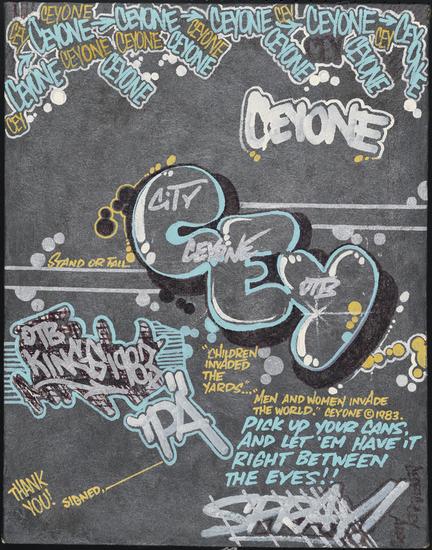 CEYONE CEYONE CEYONE CEY CEYONE CEYONE
CEY CEYONE CEYONE CEYONE CEYONE CEY
CEYONE CEYONE CEYONE CEYONE
CEY
CEYONE
CITY
CEYONE
CEY
OTB
STAND OR FALL
OTB
KINGS 1983
"CHILDREN
INVADED
THE
YARDS"...
"MEN AND WOMEN INVADE
THE WORLD." CEYONE © 1983.
PICK UP YOUR CANS,
AND LET 'EM HAVE IT
RIGHT BETWEEN
THE EYES!!
THANK
YOU!
SIGNED,